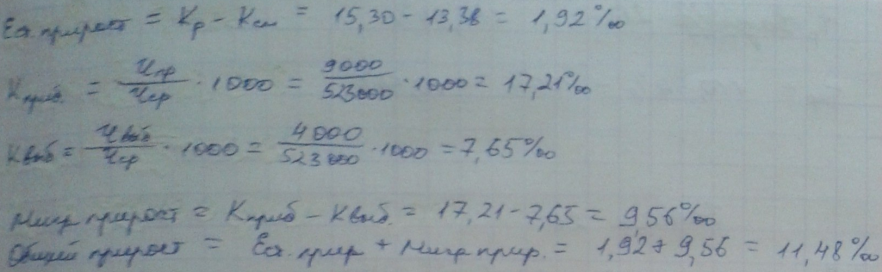 Ест. прирост = Кр - Ксм = 15,30 - 13,38 = 1,92‰
Кприб. = Чпр/Чср · 1000 = 9000/523000 · 1000 = 17,21‰
Квыб = Чвыб/Чср · 1000 = 4000/523000 · 1000 = 7,65‰
Мигр прирост = Кприб - Квыб. = 17,21 - 7,65 = 9,56‰
Общий прирост = Ест. прир + Мигр прир. = 1,92 + 9,56 = 11,48‰